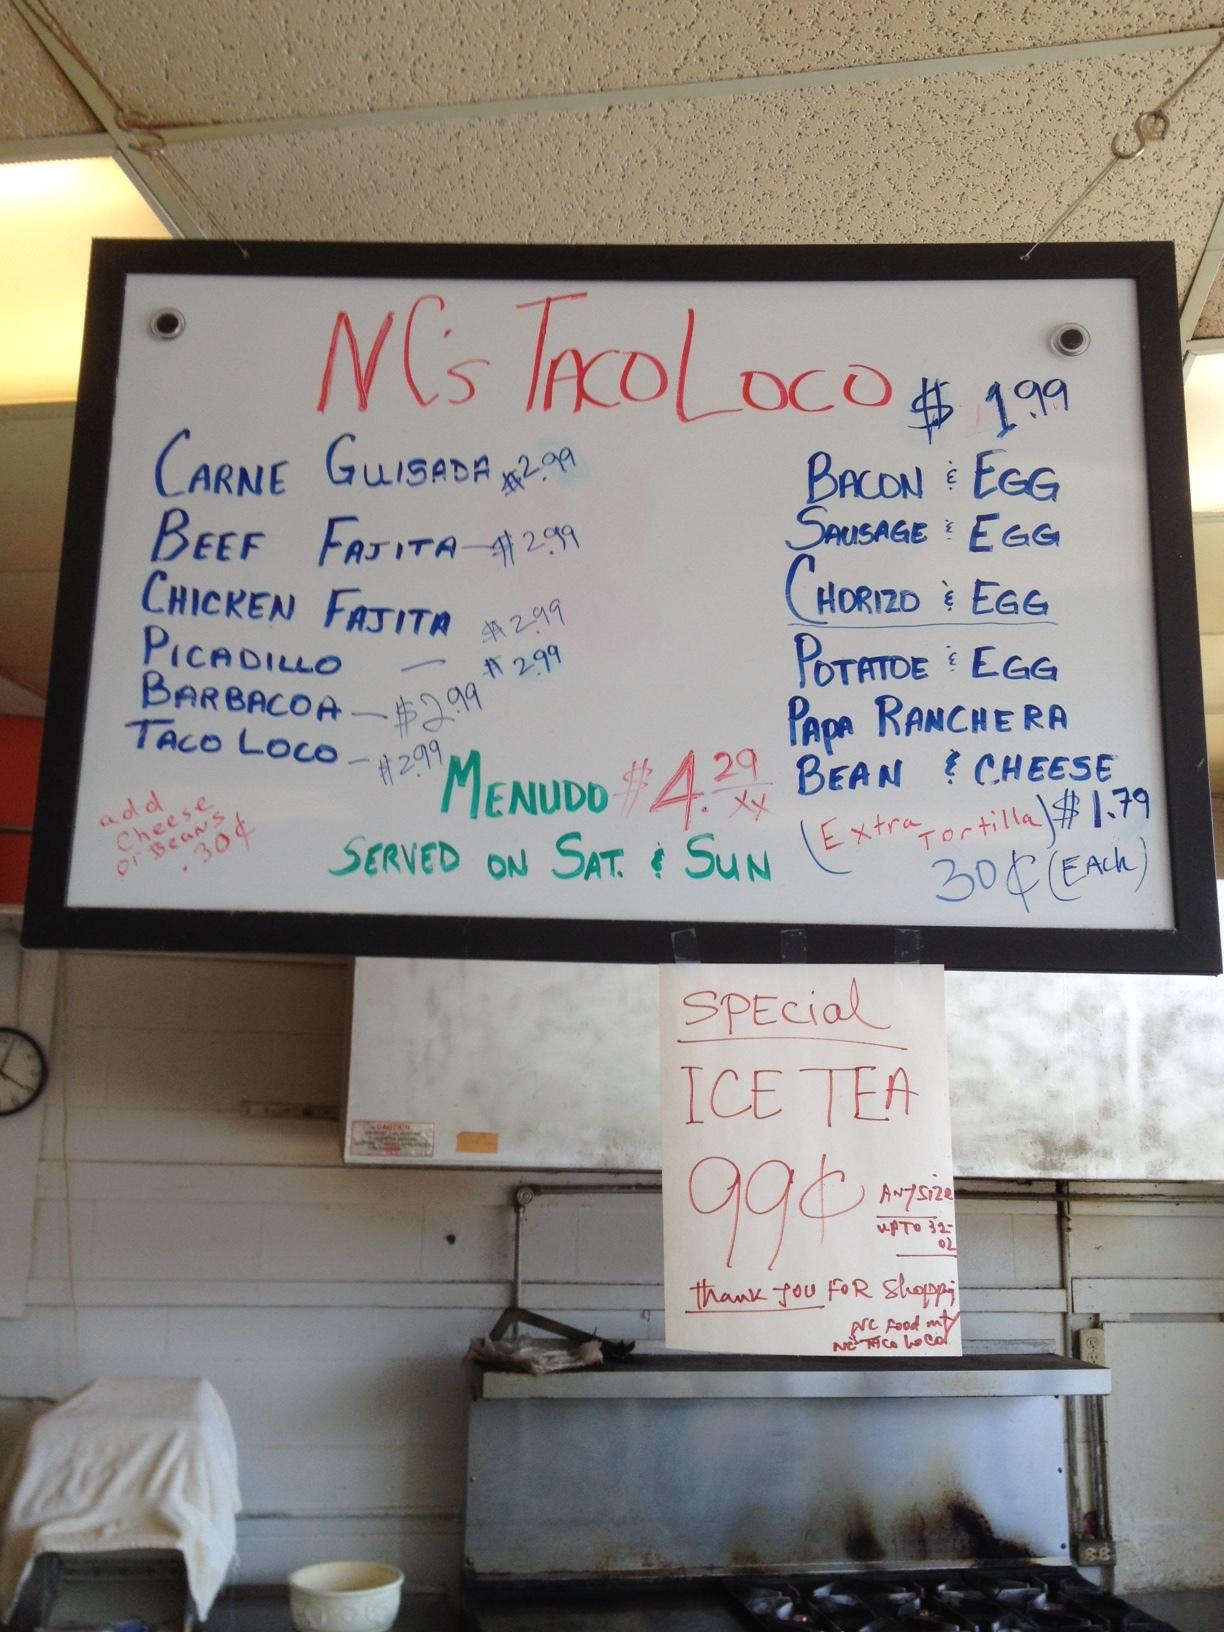 NC's TACO LOCO
$ 1.99
CARNE GUISADA $2.99
BEEF FAJITA - $2.99
CHICKEN FAJITA $2.99
PICADILLO - $2.99
BARBACOA - $2.99
TACO LOCO - $2.99
add
cheese
or Beans
.30¢
MENUDO $4.29
xx
SERVED ON SAT. & SUN
BACON & EGG
SAUSAGE & EGG
CHORIZO & EGG
POTATOE & EGG
PAPA RANCHERA
BEAN & CHEESE
$1.79
(Extra Tortilla)
30¢ (EACH)
SPECial
ICE TEA
99¢
ANY SIZE
UPTO 32-
OZ
thank you FOR Shopping
NC Food
NC TACO LOCO
CAUTION